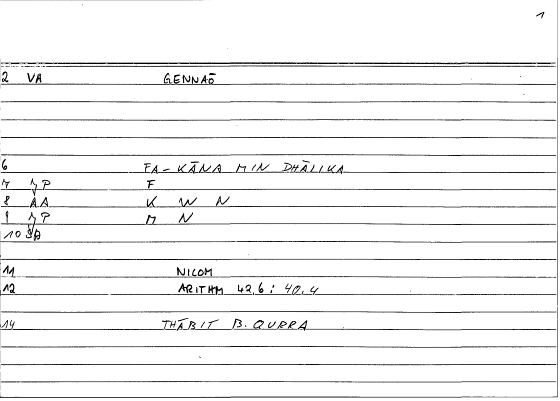 1
2 VA GENNAŌ
6 FA-KĀNA MIN DHĀLIKA
7 NP F
8 AA K W N
9 NP M N
10 SA
11 NICOM
12 ARITHM 42,6 : 40.4
14 THĀBIT B. QURRA